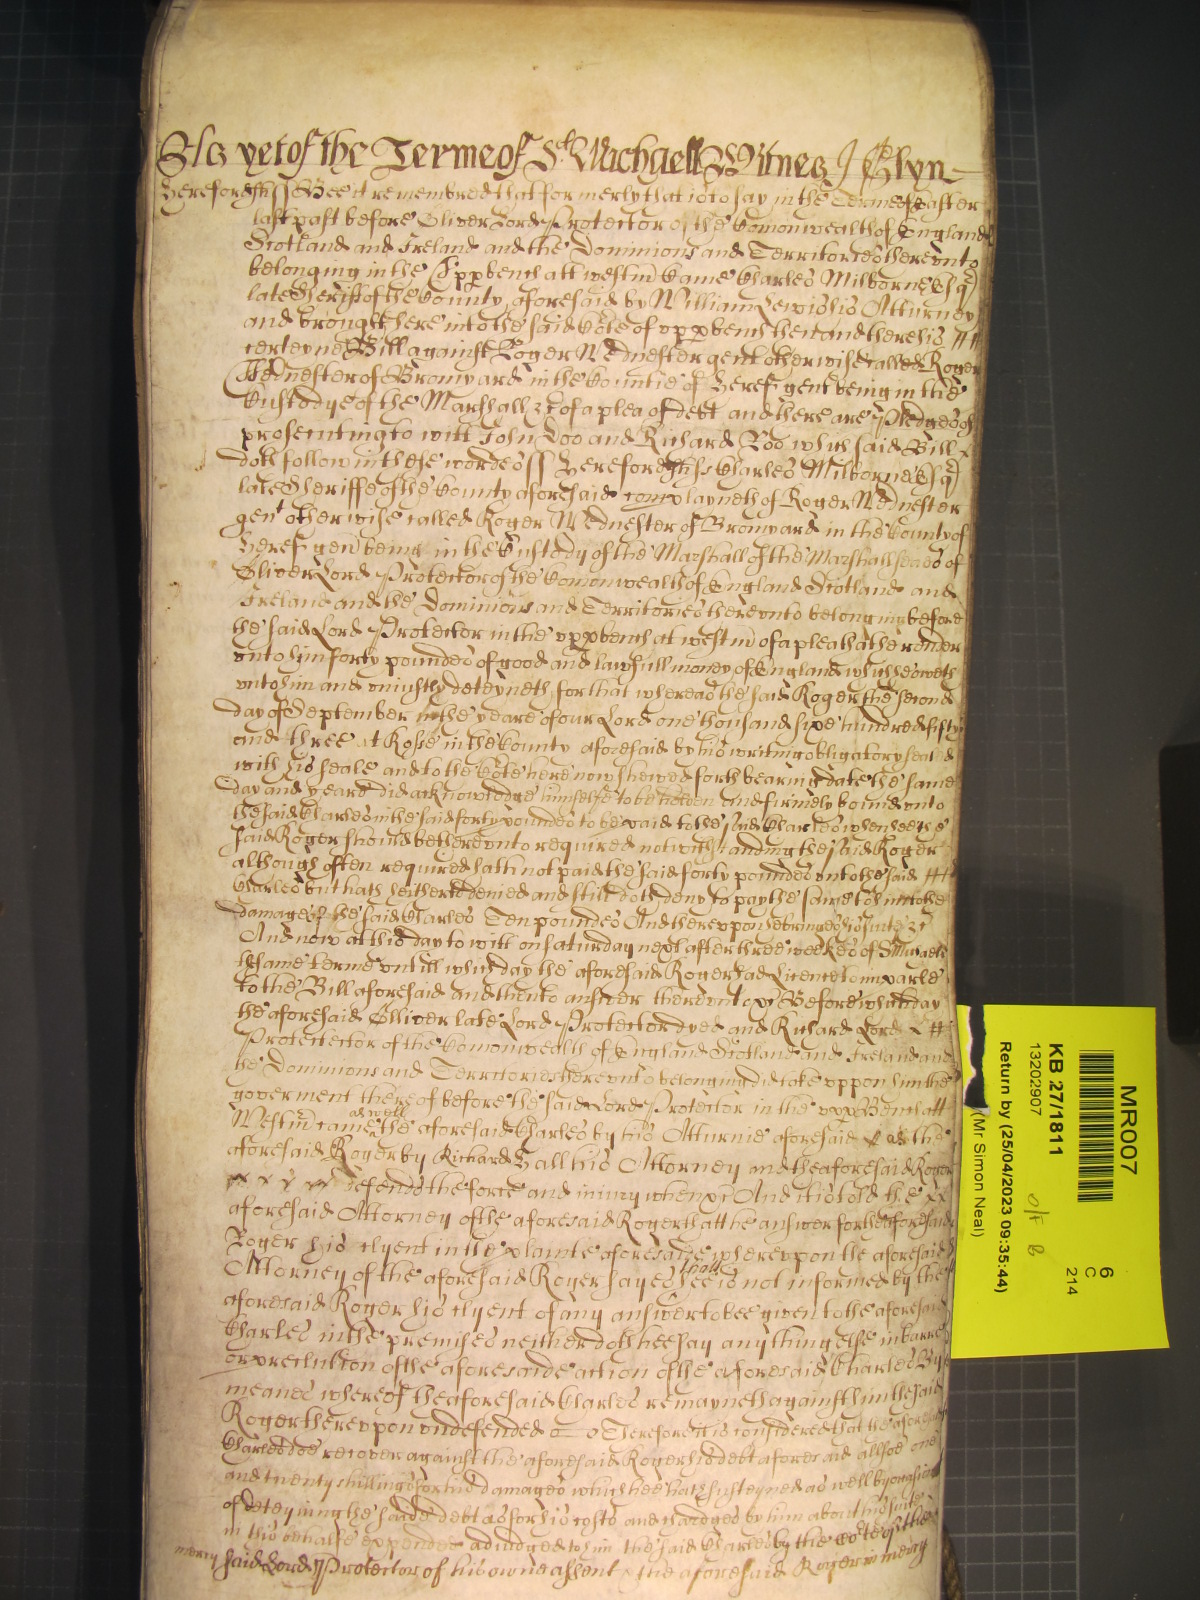 As yet of the Terme of St Michaell Witnes J Glyn
Herefordsh ss Bee it remembred that formerly that is to say in the Terme of Easter
last past before Oliver Lord Protector of the Comonwealth of England
Scotland and Ireland and the Dominions and Territories thereunto
belonging in the upp bench att westm Came Charles Milborne Esqr
late Sheriff of the County aforesaid by William Lewis his Atturney
and brought here into the said Cote of uppr bench then and there his
certeyne Bill against Roger Wednester gent otherwise called Roger
Wednester of Bromyard in the Countie of Heref gent being in the
Custodye of the Marshall &c of a plea of debt and there are Pledges of
prosecuting to witt John Doo and Richard Roo which said Bill
doth follow in these wordes ss Herefordsh ss Charles Milborne Esqr
late Sheriffe of the County aforesaid complayneth of Roger Wednester
gent otherwise called Roger Wednester of Bromyard in the County of
Heref gen being in the Custody of the Marshall of the Marshallseaes of
Oliver Lord Protector of the Comonwealth of England Scotland and
Ireland and the Dominions and Territories thereunto belonging before
the said Lord Protector in the uppr bench at westm of a plea that he render
unto him forty poundes of good and lawfull money of England which he oweth
unto him and uniustly deteyneth, for that whereas the said Roger the second
day of September in the yeare of our Lord one thousand sixe hundred fifty
and three at Rosse in the County aforesaid by his writing obligatory sealed
with his seale and to the Cote here now shewed forth bearing date the same
day and yeare did acknowledge himselfe to be holden and firmely bound unto
the said Charles in the said forty poundes to be paid to the said Charles when hee the
said Roger should be thereunto required notwithstanding the said Roger
although often required hath not paid the said forty poundes unto the said
Charles but hath heitherto denied and still doth deny to pay the same to him to the
damage of the said Charles Ten poundes And thereupon he bringes his suite &c
And now at this day to witt on Saturday next after three weekes of St Michaell
the same terme untill which day the aforesaid Roger had Licence to imparle
to the Bill aforesaid and then to answer thereunto &c Before which day
the aforesaid Olliver late Lord Protector dyed and Richard Lord
Protector of the Comonwealth of England Scotland and Ireland and
the Dominions and Territories thereunto belonging did take uppon him the
goverment thereof before the said Lord Protector in the upp Bench att
Westm came aswell the aforesaid Charles by his Atturnie aforesaid as the
aforesaid Roger by Richard Hall his Attorney and the aforesaid Roger
defends the force and iniury when &c And it is told the
aforesaid Attorney of the aforesaid Roger that he answer for the aforesaid
Roger his clyent in the plainte aforesaide whereupon the aforesaid
Attorney of the aforesaid Roger sayes that hee is not informed by the
aforesaid Roger his clyent of any answer to bee given to the aforesaid
Charles in the premises neither doth hee say any thing else in barre
or preclusion of the aforesaide action of the aforesaid Charles By
meanes whereof the aforesaid Charles remayneth against him the said
Roger thereupon undefended Therefore it is considered that the aforesaid
Charles doe recover against the aforesaid Roger his debt aforesaid allsoe one
and twenty shillings for his damages which hee hath susteyned as well by occasion
of deteyning the saide debt as for his costs and chardges by him about his suite
in this behalfe expended adiudged to him the said Charles by the Cote of the
mercy said Lord Protector of his owne assent &c the aforesaid Roger in mercy
MR007
6
C
214
KB 27/1811
13202907
o/f B
Return by (25/04/2023 09:35:44)
(Mr Simon Neal)